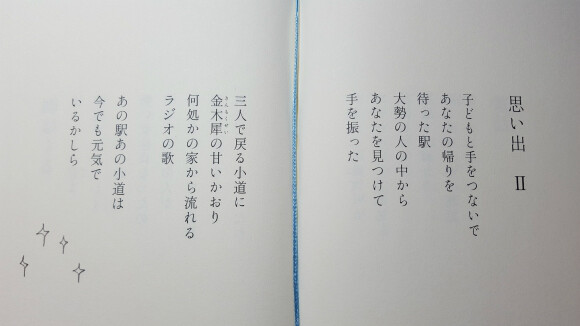 思い出 Ⅱ
子どもと手をつないで
あなたの帰りを
待った駅
大勢の人の中から
あなたを見つけて
手を振った
三人で戻る小道に
金木犀の甘いかおり
きんもくせい
何処かの家から流れる
ラジオの歌
あの駅あの小道は
今でも元気で
いるかしら